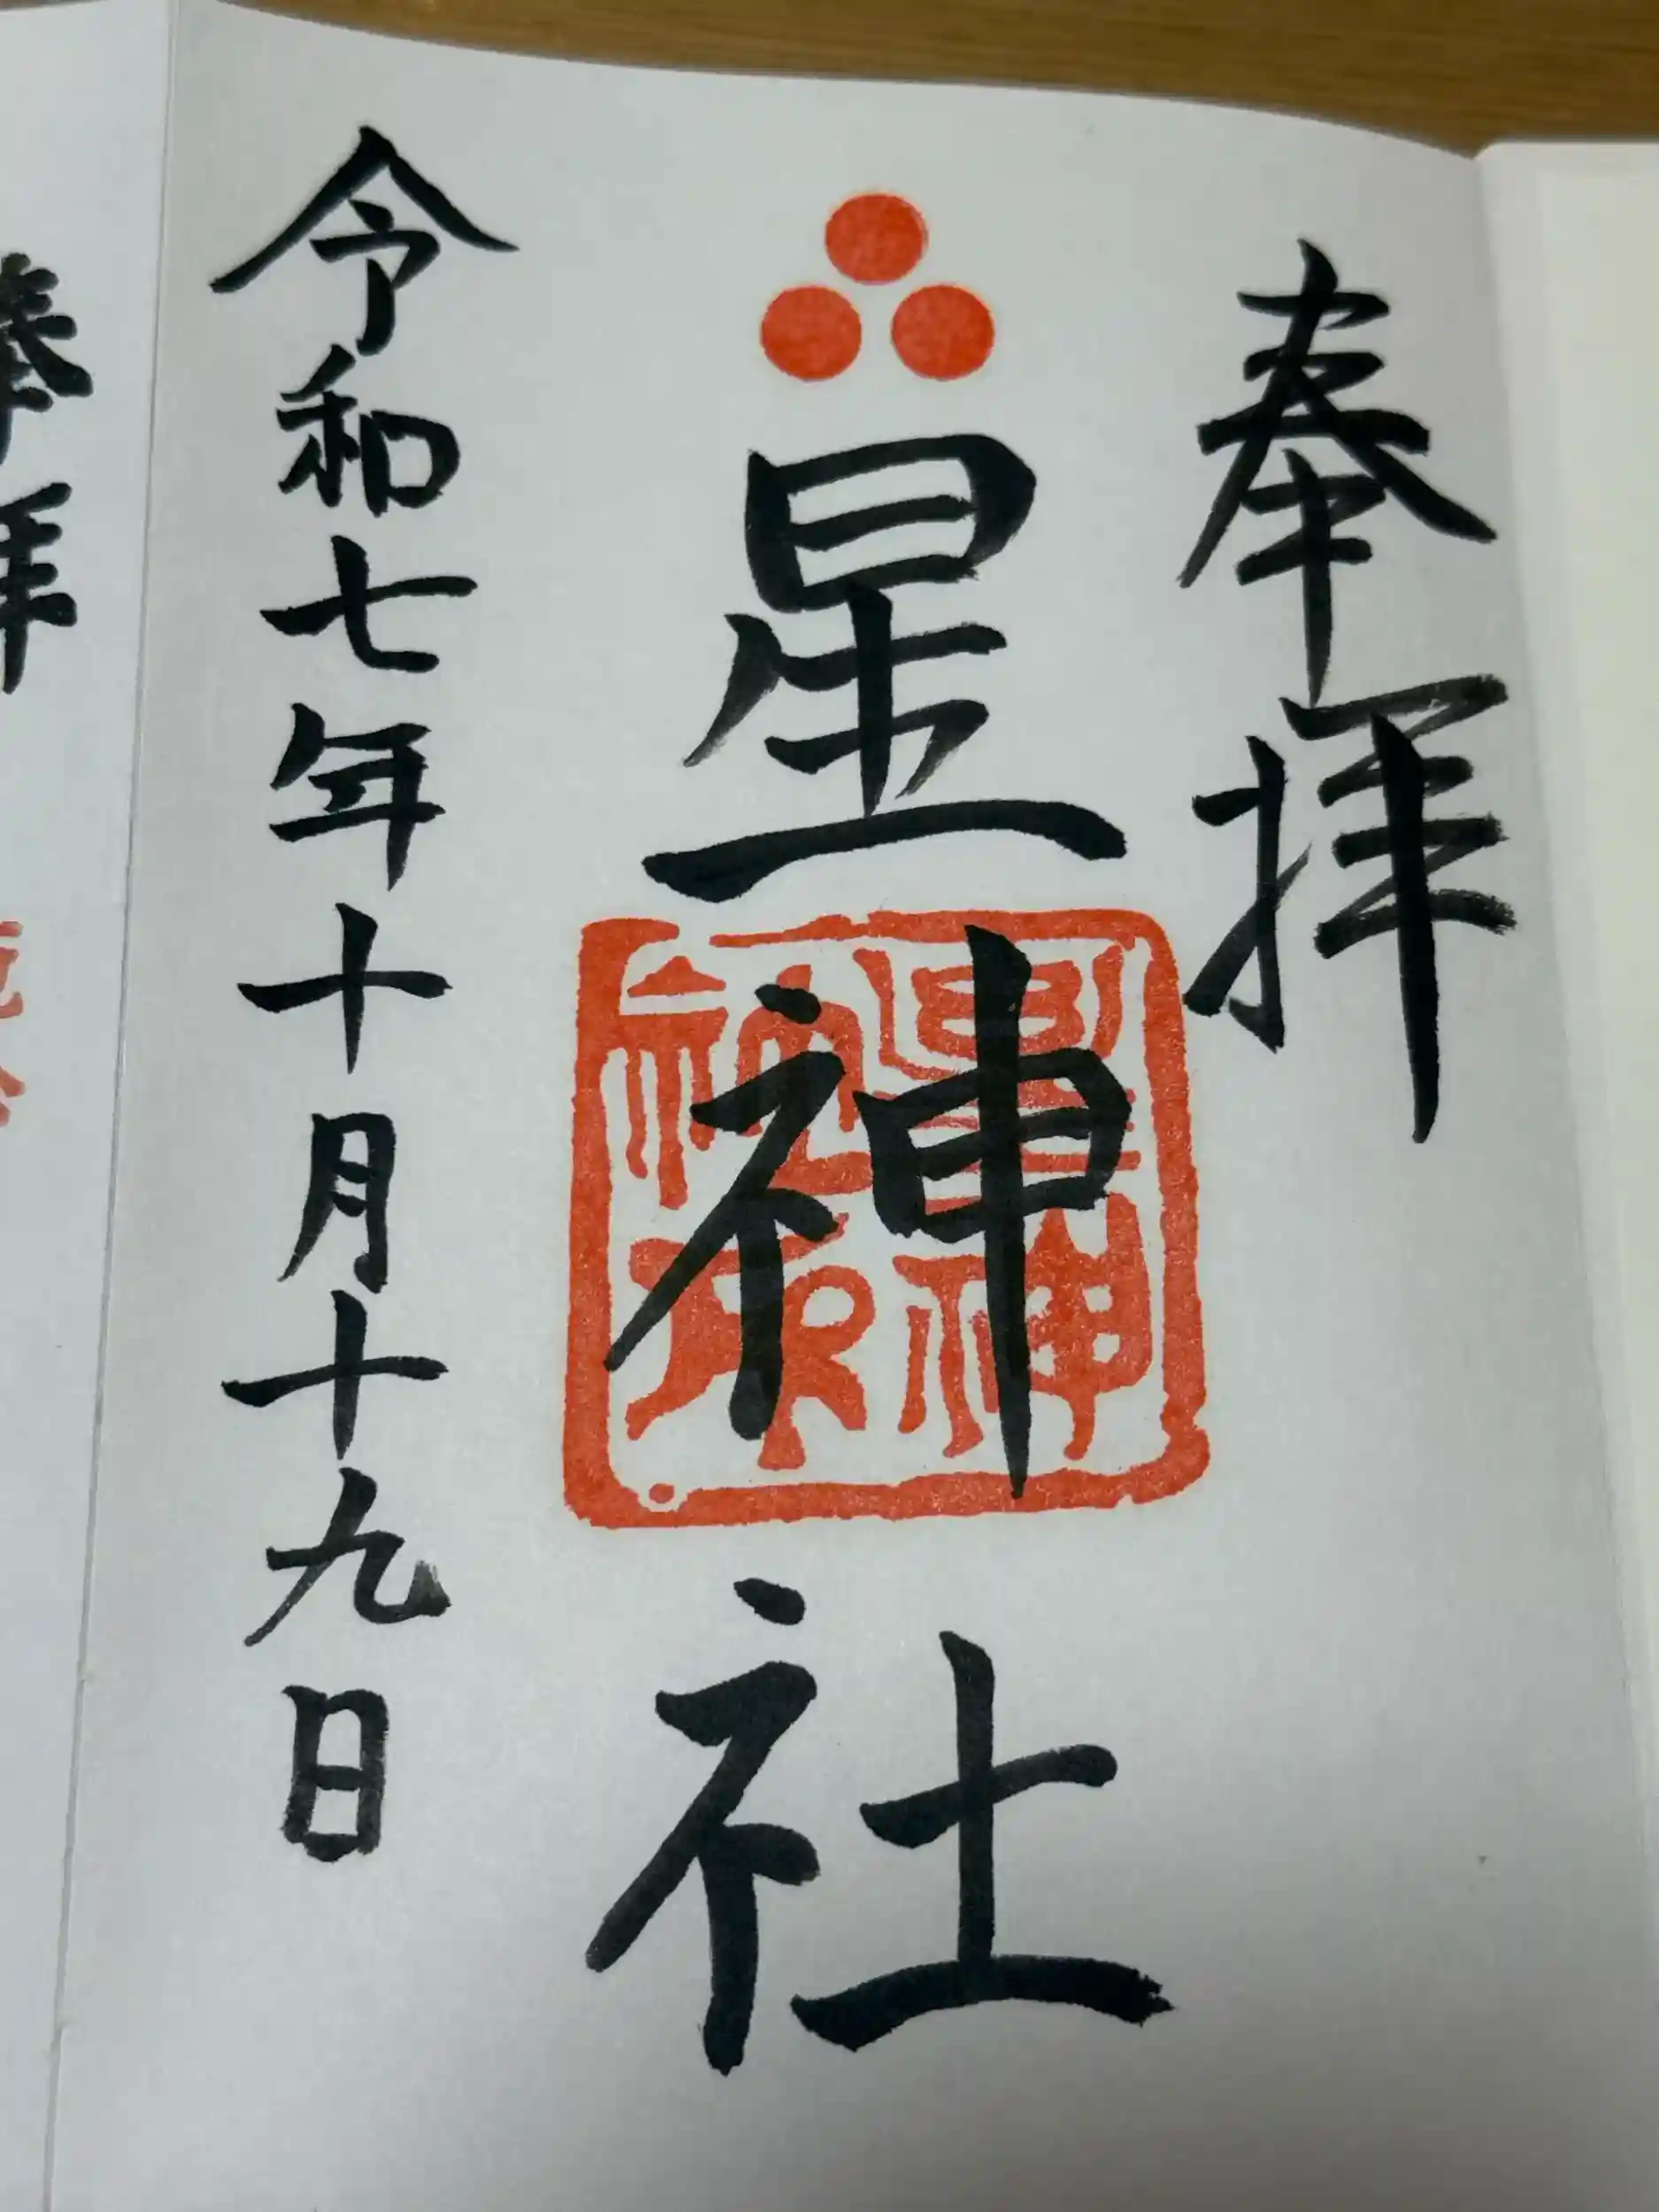 奉拝
星神社
星神社印
令和七年十月十九日
奉拝